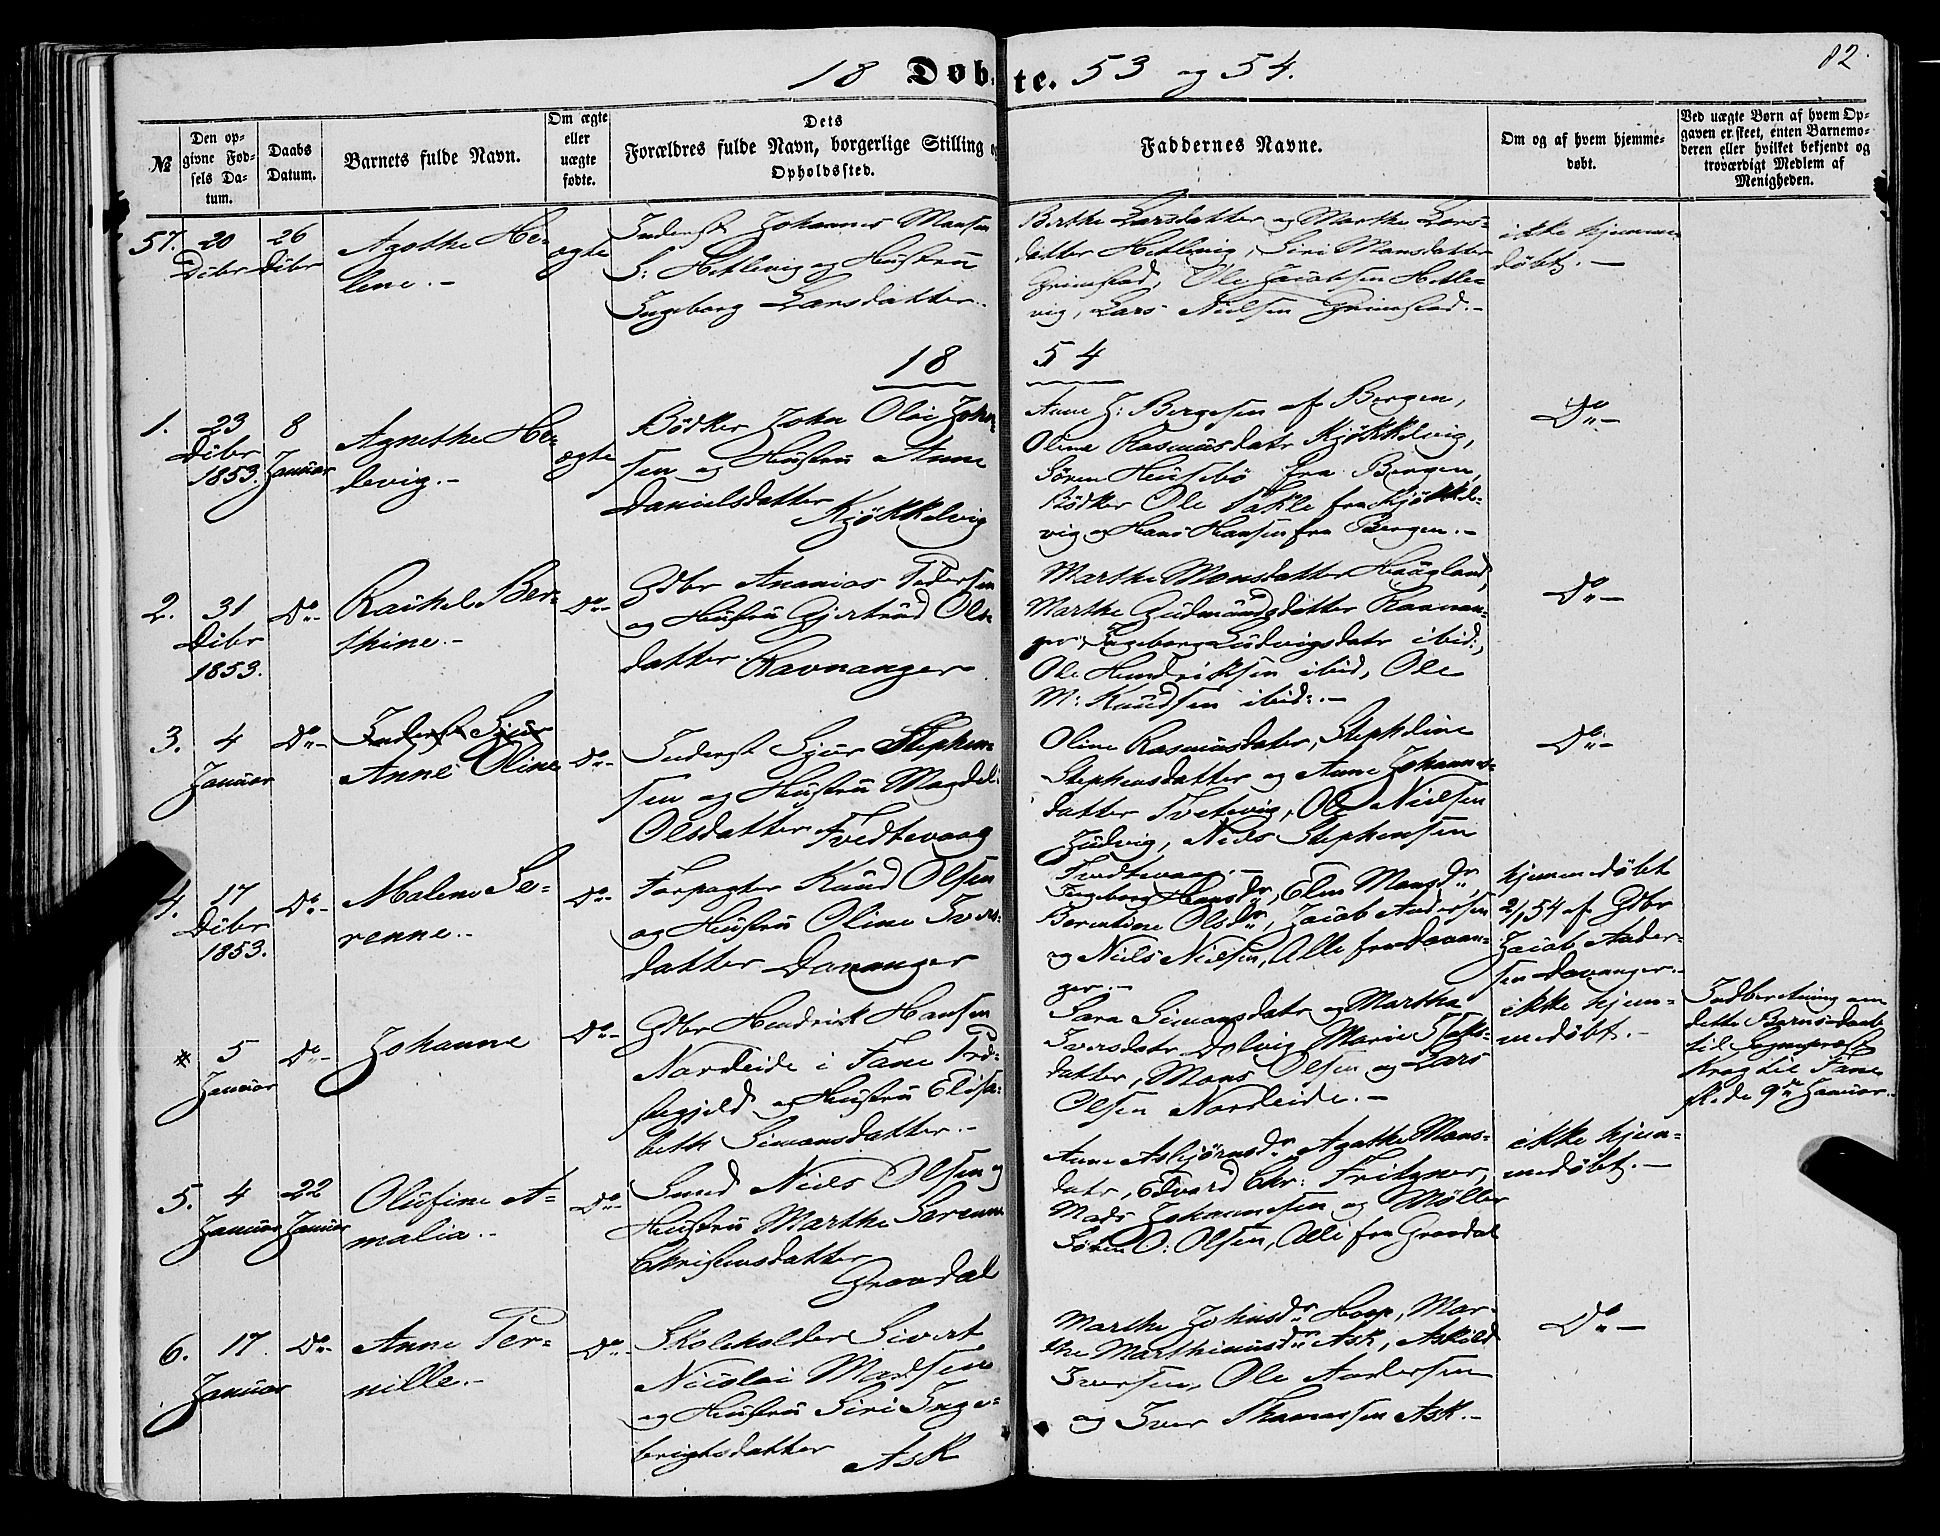 82.
18 Døbte. 53 og 54.
№
Den opgivne Fødsels Datum.
Daabs Datum.
Barnets fulde Navn.
Om ægte eller uægte fødte.
Dets Forældres fulde Navn, borgerlige Stilling og Opholdssted.
Faddernes Navne.
Om og af hvem hjemmedøbt.
Ved uægte Børn af hvem Opgaven er skeet, enten Barnemoderen eller hvilket bekjendt og troværdigt Medlem af Menigheden.
57.
20 Dcbr
26 Dcbr
Agathe Helene.-
ægte
Inderst Johannes Monsen
S: Hetlevig og Hustrü
Ingeborg Larsdatter.-
Berthe Larsdatter og Marthe Lars-
datter Hetlevig, Siri Monsdatter
Grimstad, Ole Jacobsen Hetle-
vig, Lars Nielsen Grimstad.-
ikke hjemme
døbt.-
18 54
1.
23
Dcbr
1853.
8
Januar
Agnethe He-
devig.-
ægte
Bødker John Olai John-
sen og Hustrü Anne
Danielsdatter
Kjøkkelvig
Anne J: Bergesen af Bergen,
Oline Rasmüsdatr Kjøkkelvig,
Sören Heüsebö fra Bergen,
Bødker Ole Takle fra Kjøkkel-
vig og Hans Hansen fra Bergen.-
Do-
2.
31
Dcbr
1853.
Do-
Rachel Ber-
thine.-
Do-
Gdbr Ananias Pedersen
og Hustrü Gjertrüd Ols-
datter Ravnanger
Marthe Monsdatter Haügland,
Marthe Güdmündsdatter Ravnan-
ger, Ingeborg Lüdvigsdatr ibid:,
Ole Hendriksen ibid, Ole
M: Knüdsen ibid:.-
Do-
3.
4
Januar
Do-
Inderst Sjur
Anne Oline
Do-
Inderst Sjur Stephen-
sen og Hustrü Magdeli
Olsdatter Tvedtevaag
Oline Rasmüsdater, Stephline
Stephensdatter og Anne Johannes-
datter Tvetevig, Ole Nielsen
Jüdvig, Niels Stephensen
Tvedtevaag.-
Do-
4.
17
Dcbr
1853.
Do-
Malene Se-
renne.-
Do-
Forpagter Knüd Olsen
og Hustrü Oline Ivers-
datter Davanger
Ingeborg Hansdr, Elen Monsdr,
Berentine Olsdr, Jacob Andersen
og Niels Nielsen, Alle fra Davan-
ger.-
hjemmedøbt
2/1 54 af Gdbr
Jacob Ander-
sen Davanger.-
*
5
Januar
Do-
Johanne
Do-
Gdbr Hendrick Hansen
Nordeide i Fane Præ-
stegjeld og Hustrü Elisa-
beth Simonsdatter.-
Sara Simonsdatr og Martha
Iversdatr Dolvig, Marie
datter, Mons Olsen og Lars
Olsen Nordeide.-
ikke hjem-
medøbt.-
Indberetning om
dette Barns Daab
til Sognepræst
Krog til Fane
Skede 9de Januar.
5.
4
Januar
22
Januar
Olüfine A-
malia.-
Do-
Smed Niels Olsen og
Hustrü Marthe Serenne
Christensdatter
Gravdal
Anne Asbjørnsdr, Agathe Mons-
datr, Edvard Chr: Fritzner,
Mads Johannesen og Møller
Søren O: Olsen, Alle fra Gravdal
ikke hjem-
medøbt.-
6.
17
Januar
Do-
Anne Per-
nille.-
Do-
Skoleholder Sivert
Nicolai Madsen
og Hustrü Siri Inge-
brigtsdatter Ask
Marthe Johnsdr Hoop, Mar-
the Marthinusdr Ask, Askild
Iversen, Ole Andersen
og Iver Thomassen Ask.-
Do-